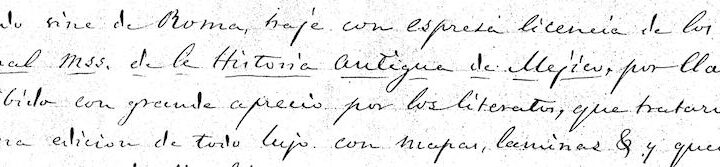 do vine de Roma, traje con espresa licencia de los
nal Mss. de la Historia antigua de Mejico, por lla
bido con grande aprecio por los literatos, que trataro
na edicion de todo lujo con mapas, laminas & y que